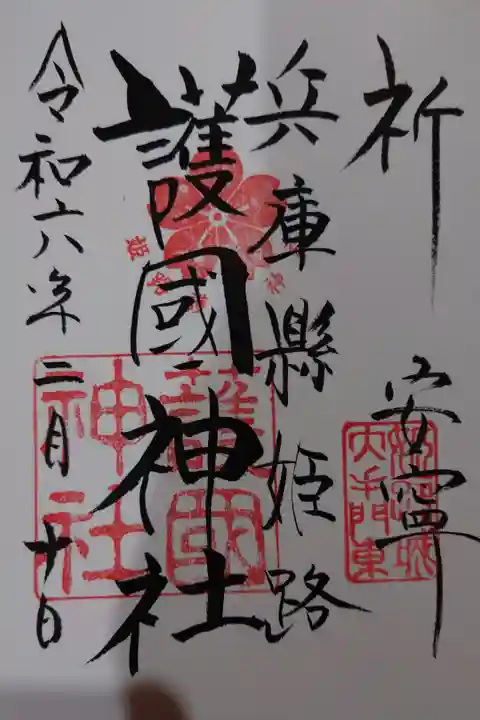 祈 安寧
兵庫縣姫路
護國神社
令和六年二月十日
護國
神社
大手門東